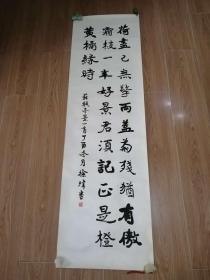 荷盡已無擎雨蓋菊殘猶有傲
霜枝一年好景君須記正是橙
黄橘緑時
蘇軾冬景一首丁酉冬月徐書